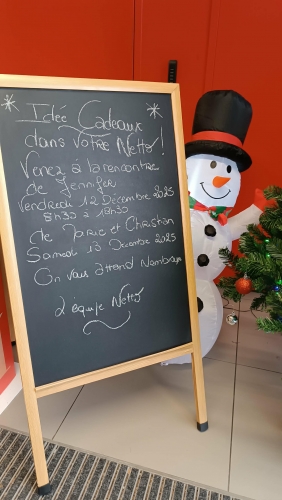 Idée Cadeaux
dans votre Netto !
Venez à la rencontre
de Jennifer
Vendredi 12 Decembre 2025
8h30 à 18h30
de Marie et Christian
Samedi 13 Decembre 2025
On vous attend Nombreux
L'équipe Netto